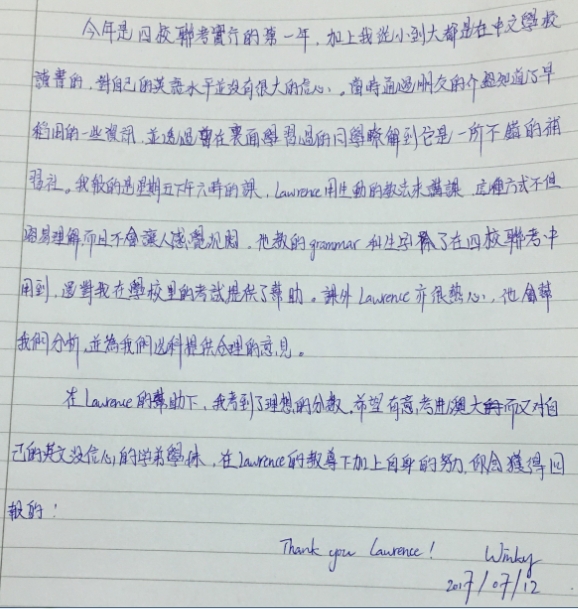 今年是四校聯考實行的第一年，加上我從小到大都是在中文學校
讀書的，對自己的英語水平並沒有很大的信心。當時通過朋友的介紹知道了早
稻田的一些資訊，並透過曾在裏面學習過的同學瞭解到它是一所不錯的補
習社。我報的是星期五下午六時的課，Lawrence用生動的教法來講課，這種方式不但
容易理解而且不會讓人感覺沉悶，他教的grammar和生字除了在四校聯考中
用到，還對我在學校里的考試提供了幫助。課外Lawrence亦很熱心，他會幫
我們分析，並為我們選科提供合理的意見。
在Lawrence的幫助下，我考到了理想的分數，希望有意考進澳大而又对自
己的英文没信心的師弟學妹，在Lawrence的教導下加上自身的努力，你會獲得回
報的！
Thank you Lawrence! Winky
2017/07/12